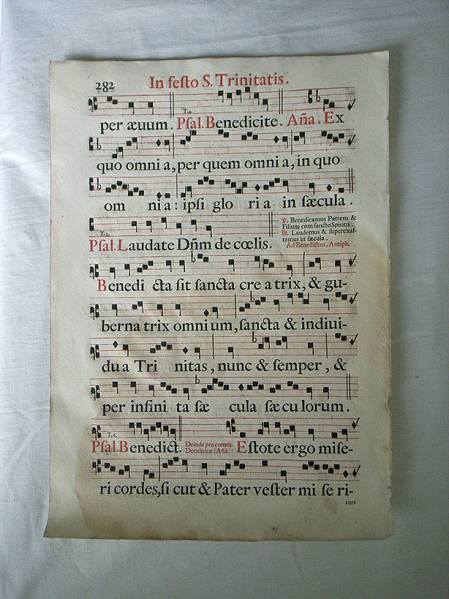 282 In festo S. Trinitatis.
per æuum. Psal. Benedicite. Aña. Ex
quo omni a, per quem omni a, in quo
om ni a : ipsi glo ri a in sæcula.
Psal. Laudate Dñm de cœlis.
℣. Benedicamus Patrem &
Filium cum sancto Spiritu.
℟. Laudemus & superexal-
temus in sæcula.
Ad Benedictus, Antiph.
Benedi cta sit sancta cre a trix, & gu-
berna trix omni um, sancta & indiui-
du a Tri nitas, nunc & semper, &
per infini ta sæ cula sæcu lorum.
Psal. Benedict. Deinde pro comm.
Dominicæ: Aña. Estote ergo mise-
ri cordes, si cut & Pater vester mi se ri-
cors